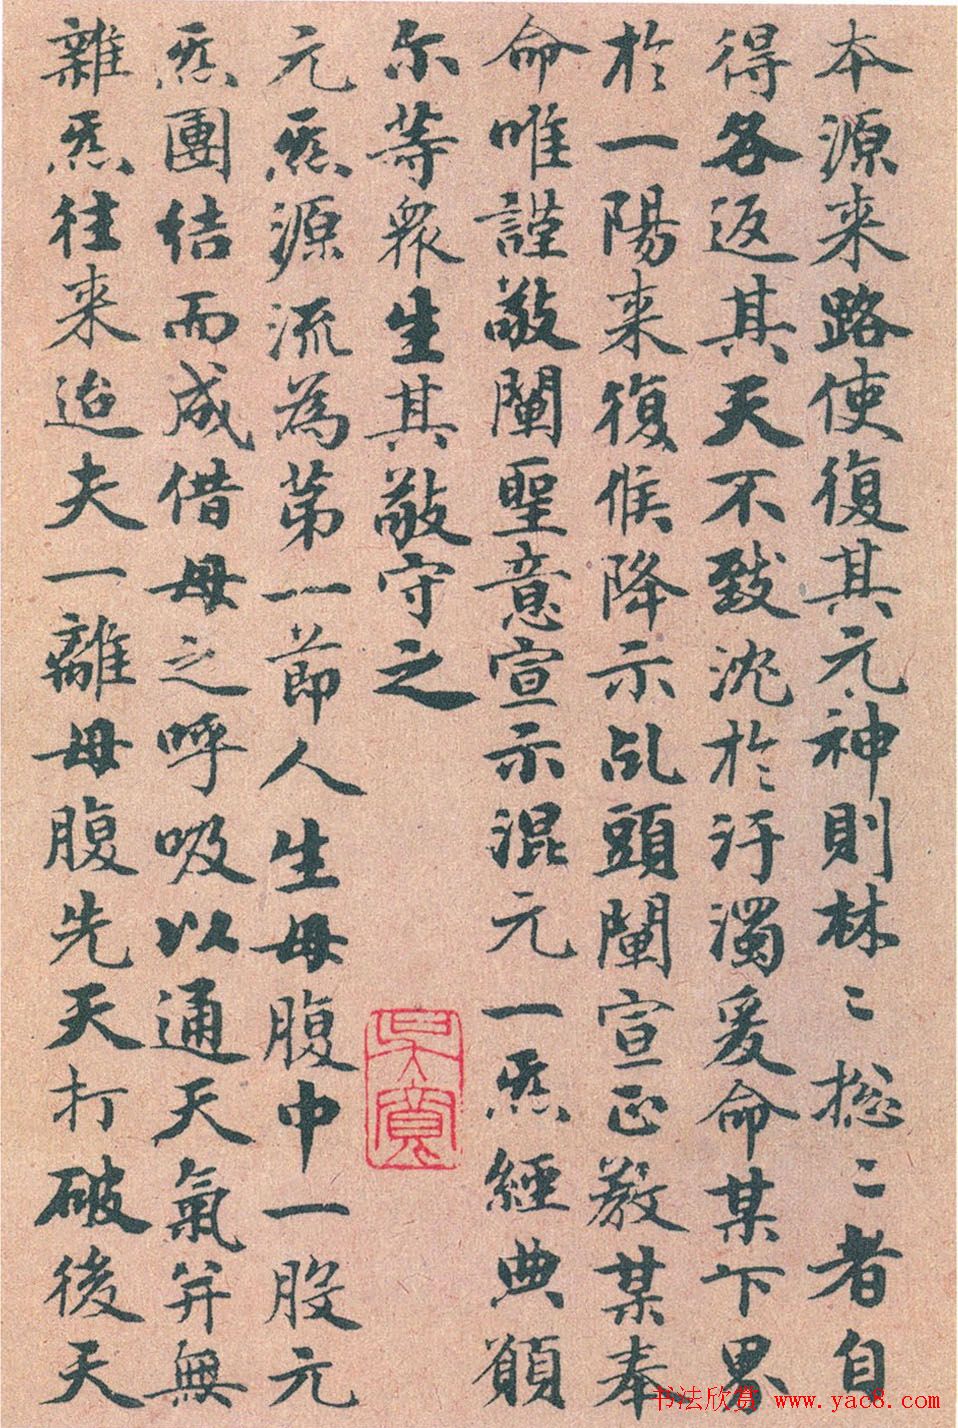 本源来路使復其元神則林〻揔〻者自
得各返其天不致沈於汙濁爰命某下界
於一陽来復候降示乩頭闡宣正教某奉
命唯謹敬闡聖意宣示混元一炁經典願
尔等衆生其敬守之
元炁源流為第一節人生母腹中一股元
炁團結而成借母之呼吸以通天氣并無
雜炁往来迨夫一離母腹先天打破後天
书法欣赏 www.yac8.com